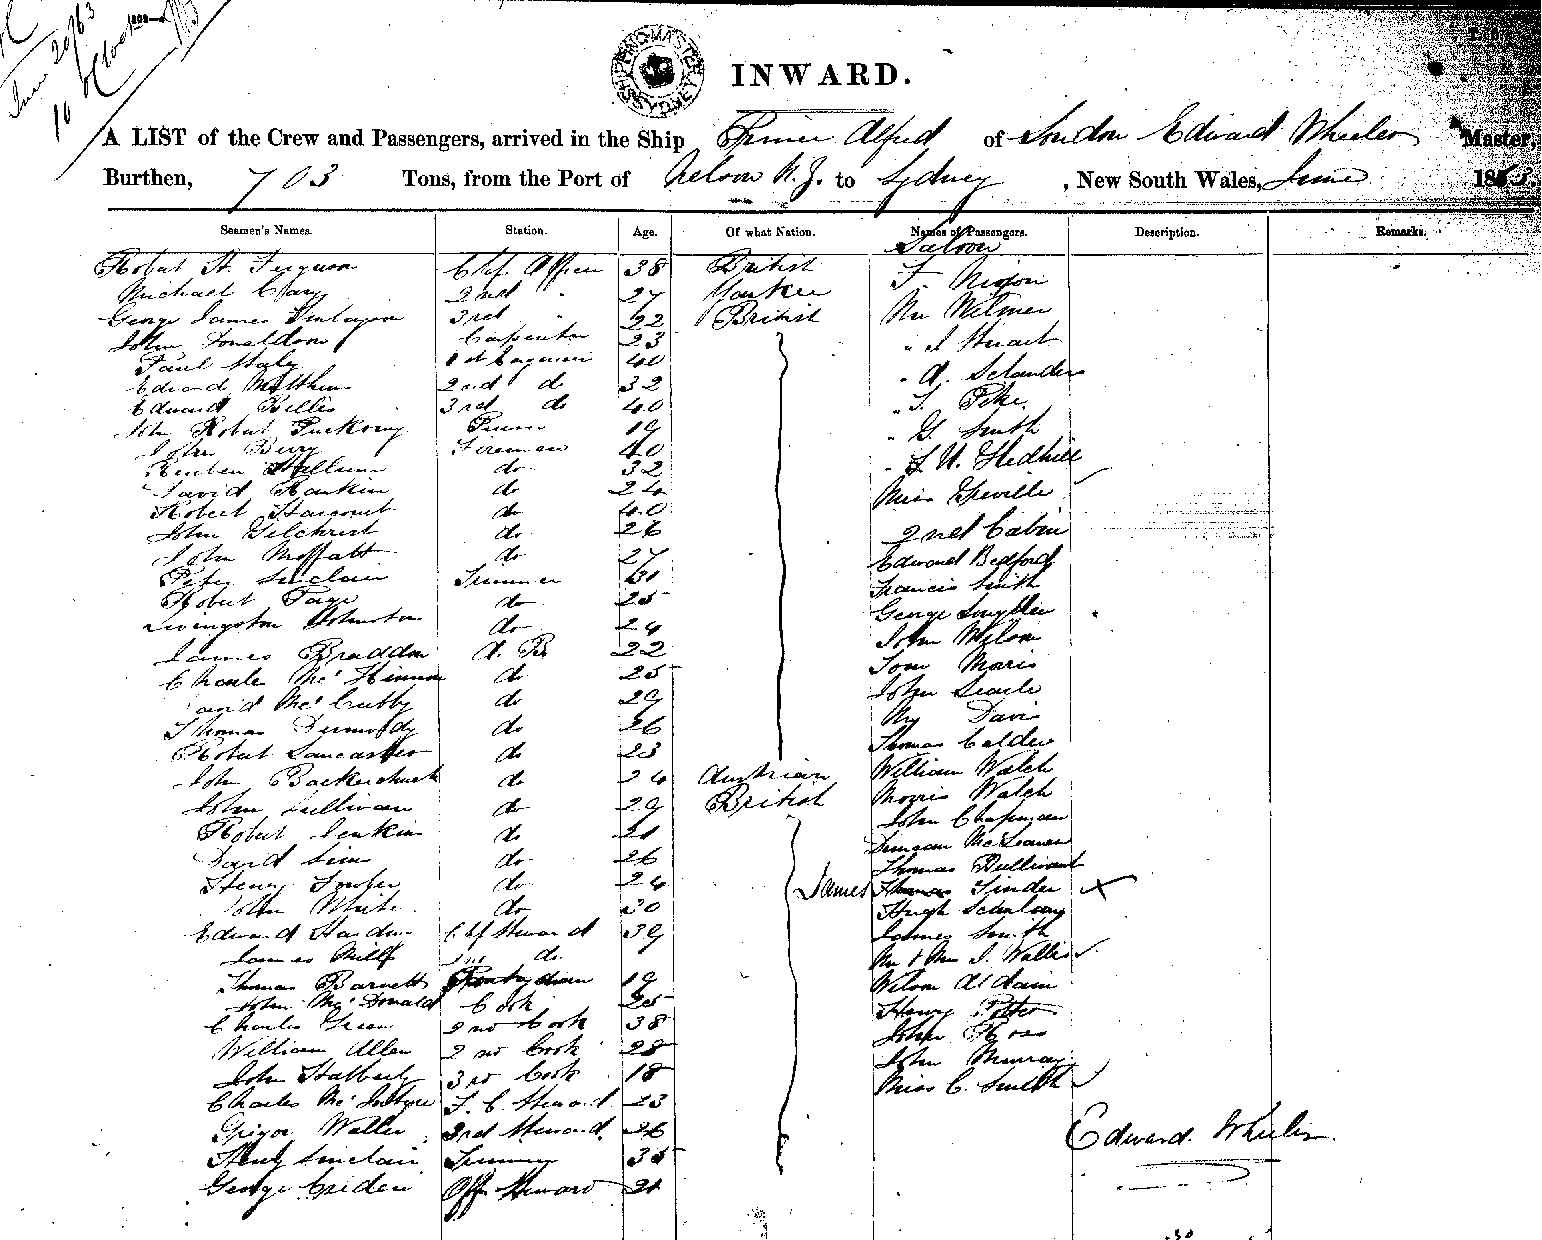 June 20/63
10 o'clock
SHIPPING MASTER SYDNEY
INWARD.
A LIST of the Crew and Passengers, arrived in the Ship Prince Alfred of London Edward Wheeler Master,
Burthen, 703 Tons, from the Port of Nelson N.Z. to Sydney, New South Wales, June 186
Seamen's Names. Station. Age. Of what Nation. Names of Passengers. Description. Remarks.
Saloon
Robert H. Ferguson Chf Officer 38 British F. Nixon
Michael Clary 2nd " 27 Yankee Mr Wilmer
George James Finlayson 3rd " 22 British
John Donaldson Carpenter 23 " J Stuart
Paul Haly 1st Engineer 40
Edward Matthews 2nd do 32 " A. Selanders
Edward Billes 3rd do 40 " T. Pike
Robert Puckring 19 " G. Smith
John Berry Fireman 40
Reuben Williams do 32 " Stedhill
David Rankin do 24
Robert Harcourt do 40 Miss Greville
John Gilchrist do 26 2nd Cabin
John Moffatt do 27 Edward Bedford
Peter Sinclair Trimmer 31 Francis Smith
Robert Page do 25 George
Livingston Johnston do 24 John Wilson
James Braddon A. B 22 Tom Maris
Charles McKinnon do 25 John Searle
David McCrubby do 29 Mr Davis
Thomas Dermody do 26 Thomas Calder
Robert Lancaster do 23
John do 24 Austrian William Walch
John Sullivan do 29 British Morris Walch
Robert Jenkins do 21 John Chapman
David Sim do 26 Duncan McLennan
Thomas Bullivant
Henry do 24 James Thomas Tinder X
John White do 30 Hugh
Edward Harding Chf Steward 39 James Smith
James Mills 2nd do Mr & Mrs J. Wallis
Thomas Barnett Pantryman 19 Wilson
John McDonald Cook 25 Henry Potter
Charles Green 2nd Cook 38 John Ross
William Allen 2nd Cook 28 John Murray
John Halbert 3rd Cook 18 Miss C. Smith
Charles McIntyre F. C. Steward 23
Waller 3rd Steward 26 Edward Wheeler
Henry Sinclair Trimmer 35
George Criden Off Steward 21